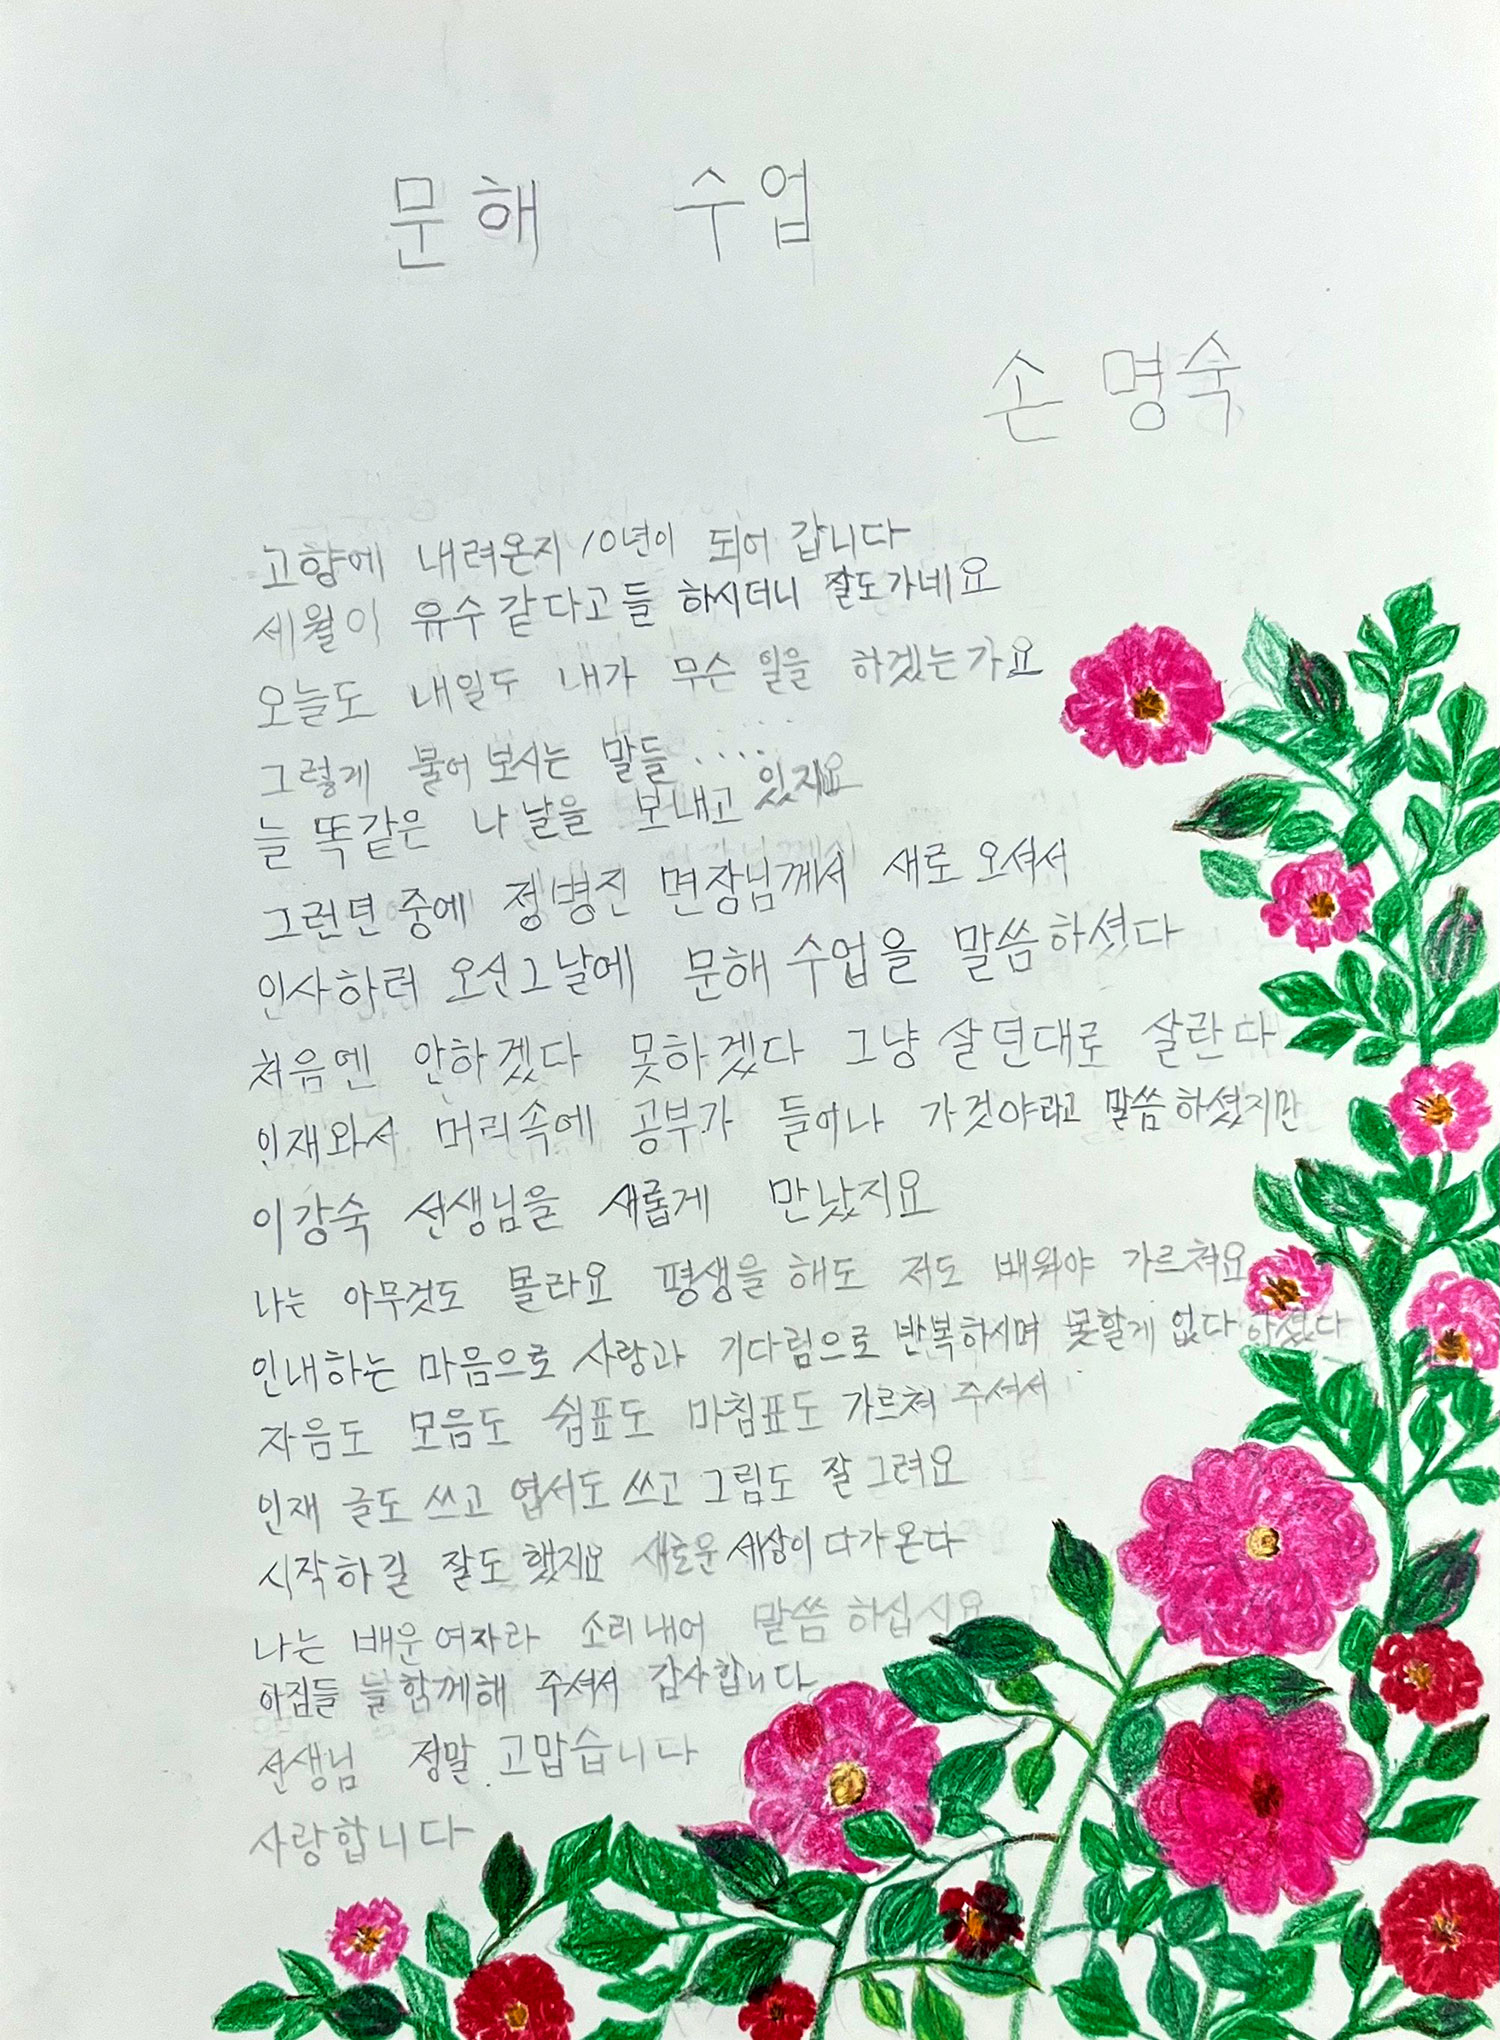 문해 수업
손명숙
고향에 내려온지 10년이 되어 갑니다
세월이 유수같다고들 하시더니 잘도가네요
오늘도 내일도 내가 무슨 일을 하겠는가요
그렇게 물어 보시는 말들.....
늘 똑같은 나날을 보내고 있지요
그런던 중에 정병진 면장님께서 새로 오셔서
인사하려 오신그날에 문해 수업을 말씀하셨다
처음엔 안하겠다 못하겠다 그냥 살던대로 살란다
인재와서 머리속에 공부가 들어나 가것야라고 말씀하셨지만
이강숙 선생님을 새롭게 만났지요
나는 아무것도 몰라요 평생을 해도 저도 배워야 가르쳐요
인내하는 마음으로 사랑과 기다림으로 반복하시며 못할게 없다 하셨다
자음도 모음도 쉼표도 마침표도 가르쳐 주셔서
인재 글도 쓰고 엽서도 쓰고 그림도 잘 그려요
시작하길 잘도 했지요 새로운 세상이 다가온다
나는 배운여자라 소리내어 말씀 하십시요
아짐들 늘 함께해 주셔서 감사합니다
선생님 정말 고맙습니다
사랑합니다